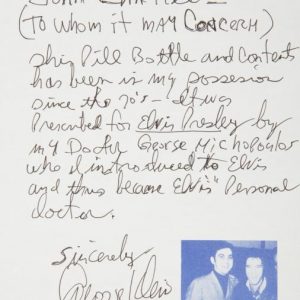 (TO WHOM IT MAY CONCERN)
This Pill Bottle and Contents
has been in my possesion
since the 70's - It was
Prescribed for Elvis Presley by
my Doctor George Nichopoulos
who I introduced to Elvis
and thus became Elvis' Personal
doctor.
Sincerely
George Klein